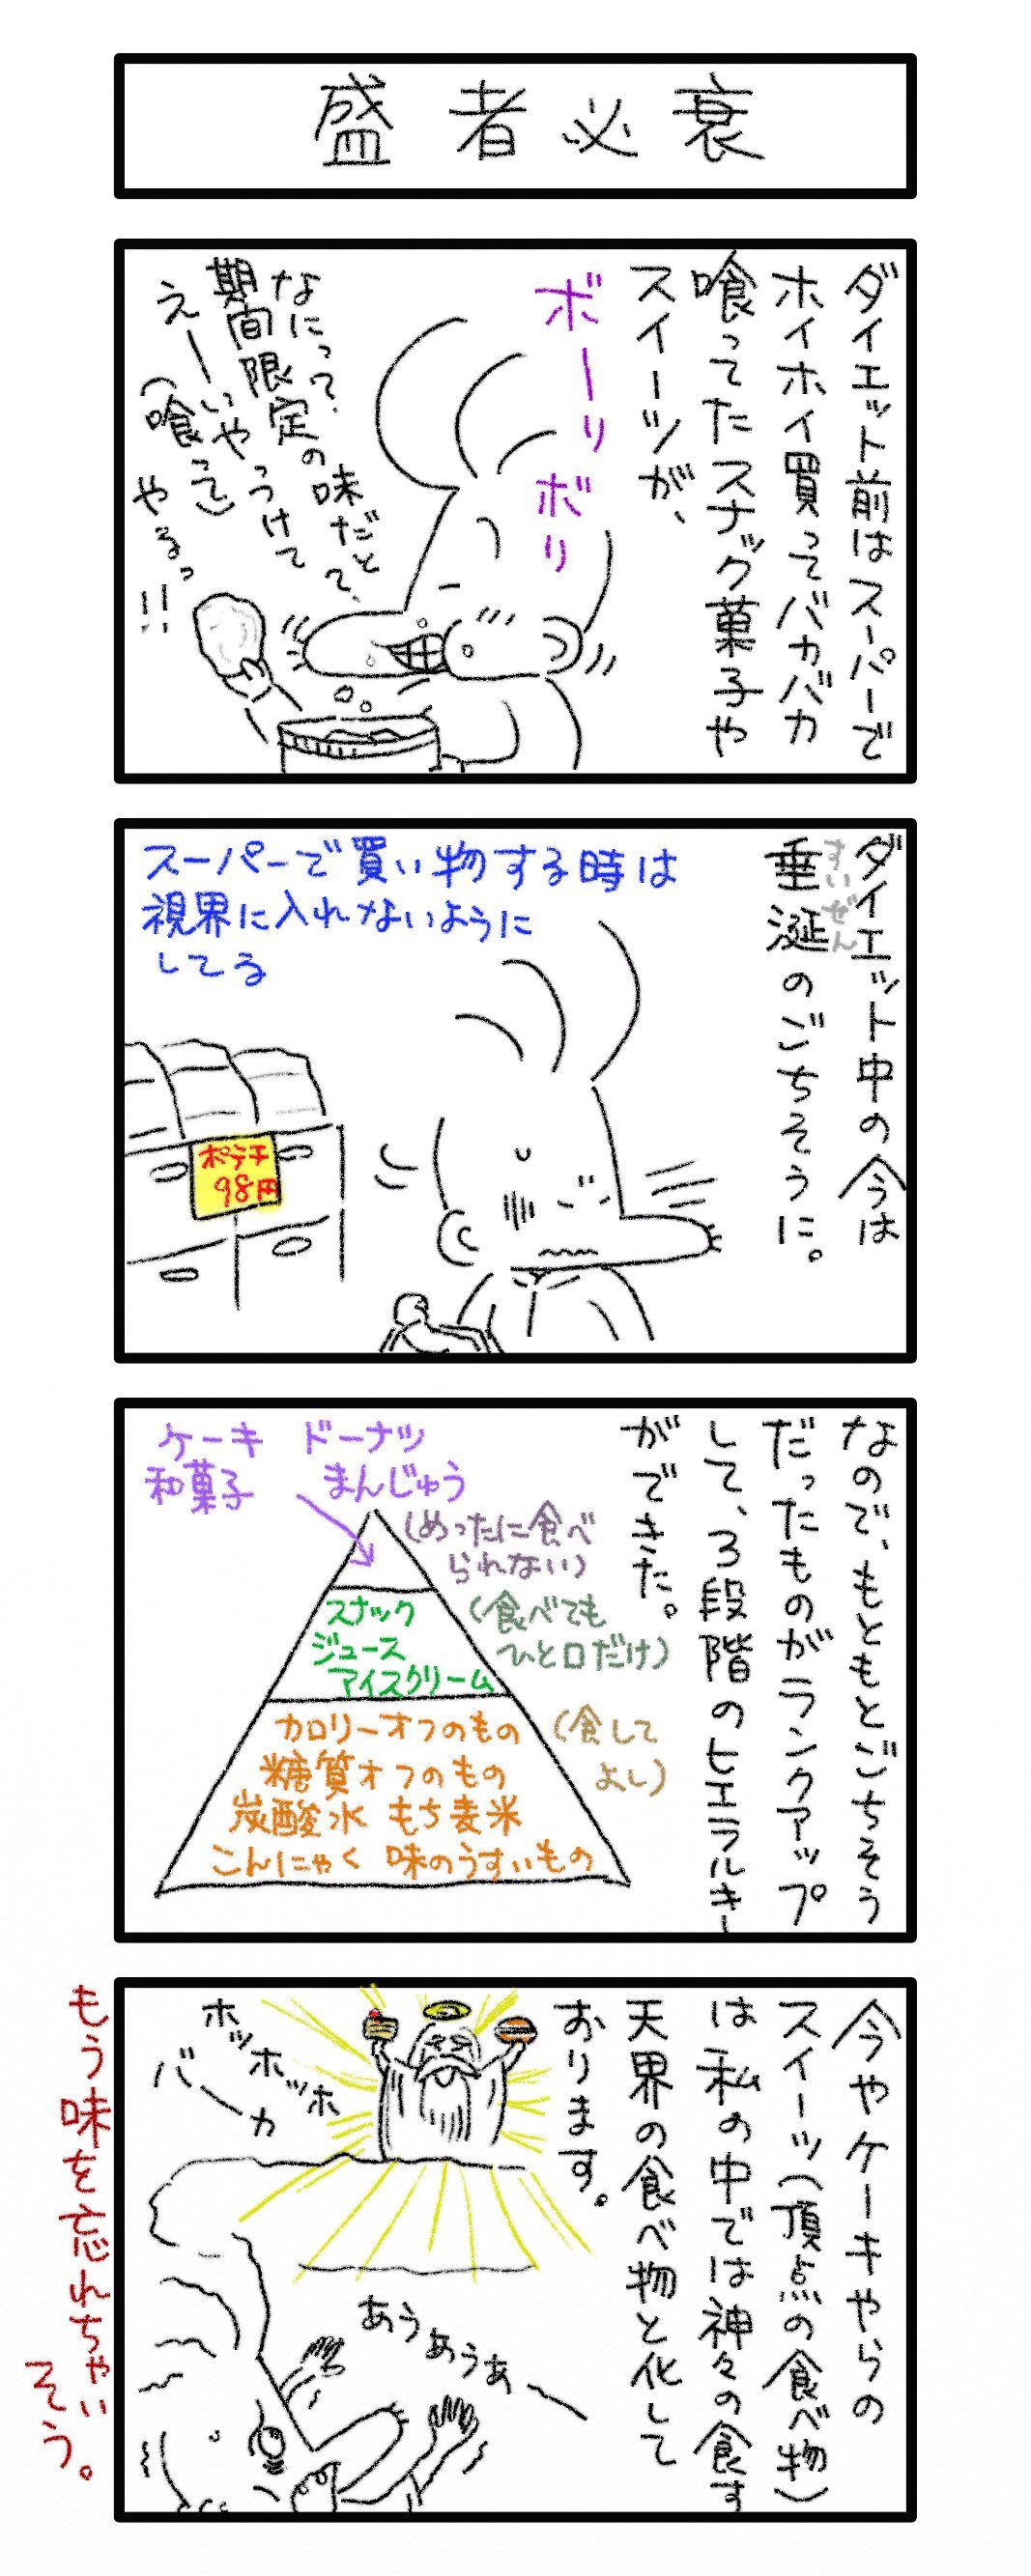 盛者必衰
ダイエット前はスーパーで
ホイホイ買ってバカバカ
喰ってたスナック菓子や
スイーツが、
ボーリボリ
なにって、
期間限定の味だとて、
えーいやっつけて
(喰って)
やるっ!!
ダイエット中の今は
すいぜん
垂涎のごちそうに。
スーパーで買い物する時は
視界に入れないように
してる
ポテチ
98円
なので、もともとごちそう
だったものがランクアップ
して、3段階のヒエラルキー
ができた。
ケーキ ドーナツ
和菓子 まんじゅう
(めったに食べ
られない)
スナック
ジュース
アイスクリーム
(食べても
ひと口だけ)
カロリーオフのもの
糖質オフのもの
炭酸水 もち麦米
こんにゃく 味のうすいもの
(食して
よし)
今やケーキやらの
スイーツ(頂点の食べ物)
は私の中では神々の食す
天界の食べ物と化して
おります。
ホッホッホ
バーカ
あうあうあー
もう味を忘れちゃい
そう。